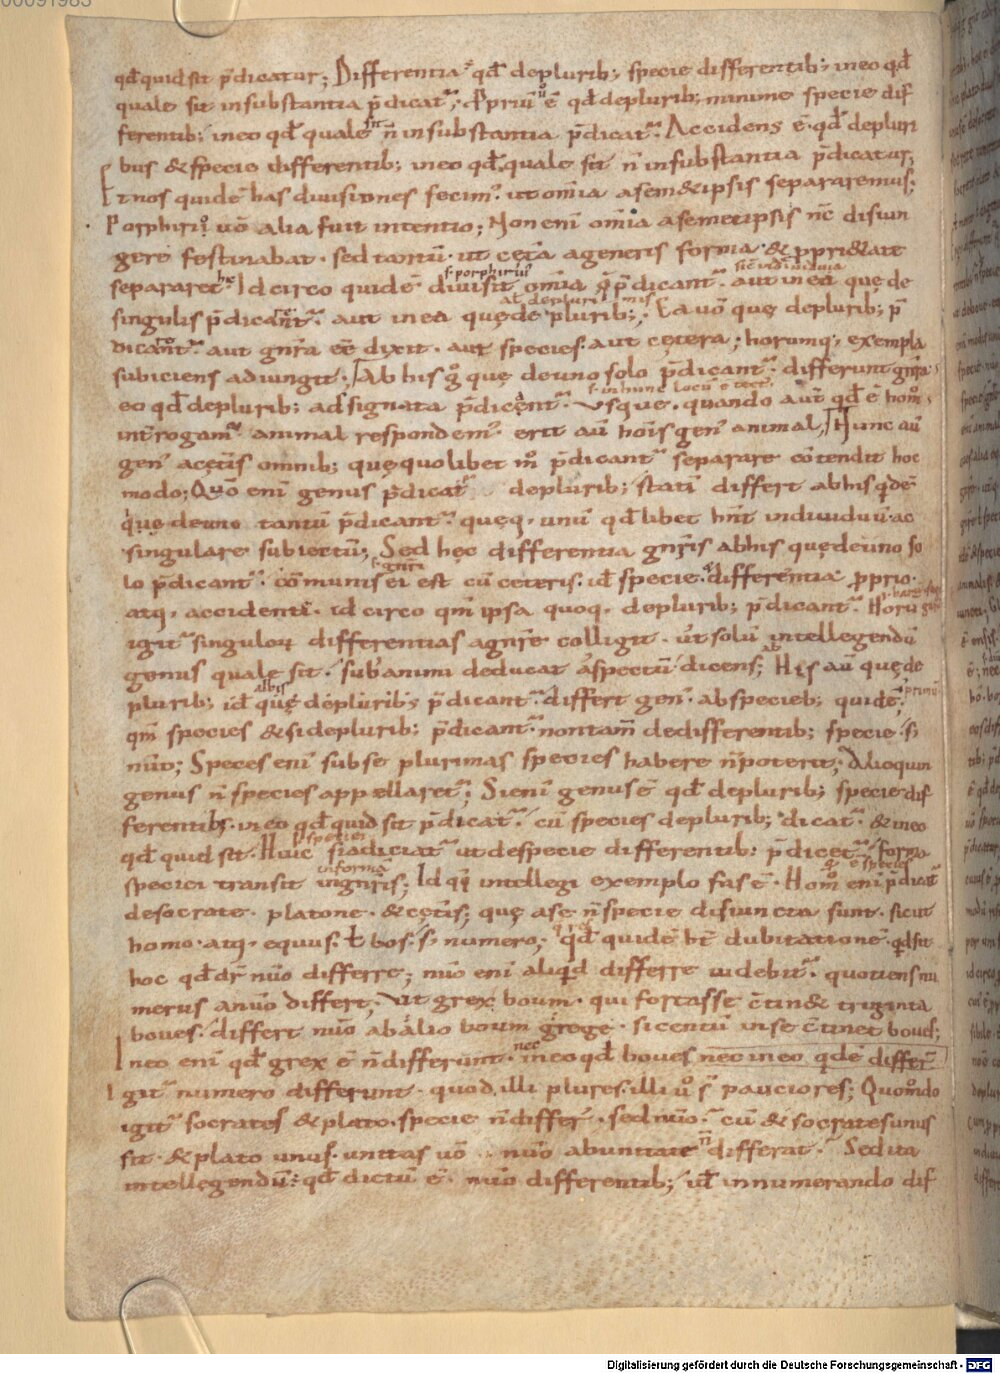 00091983
qđ quid sit p̄dicatur; Differentia ÷ qđ de plurib; specie differentib; in eo qđ
quale sit in substantia p̄dicat᷒; Ppriū ē qđ de plurib; minime specie dif
ferentib; in eo qđ quale sit n̄ in substantia p̄dicat᷒. Accidens ē qđ de pluri
bus & specie differentib; in eo qđ quale sit n̄ in substantia p̄dicatur;
Et nos quidē has divisiones fecim᷒ ut omia a sem&ipsis separaremus;
Porphirí᷒ uō alia fuit intentio; Non enī omia a semetipsis nc̄ disiun
gere festinabat · sed tantū · ut cęta a generis forma & pprietate
separaret; Id circo quidē divisit omia q̄ p̄dicant᷒ aut in ea quę de
s· porphirius
sic̄ individua
singulis p̄dicant᷒ aut in ea quę de plurib; Ea uō quę de plurib; p̄
dicant᷒ aut gn̄ra eē dixit · aut species · aut cętera; horumq; exempla
subiciens adiungit · Ab his g᷒ que de uno solo p̄dicant᷒ differunt gn̄ra
eo qđ de plurib; adsignata p̄dicent᷒ Vsque · quando aut̄ qđ ē hom̊
introgam᷒ animal respondem᷒ erit aū hois gen᷒ animal, Hunc aū
gen᷒ a cętis omnib; quę quolibet m̊ p̄dicant᷒ separare cōtendit hoc
modo; Quō enī genus p̄dicat᷒ de plurib; statī differt ab his q̇dē
quę de uno tantū p̄dicant᷒ quęq; unū qđ libet hn̄t individuū ac
singulare subiectū; Sed hęc differentia gn̄ris ab his quę de uno so
lo p̄dicant᷒ cōmunis ei est cū ceteris · id specie · differentia pprio ·
atq; accidenti · id circo qm̄ ipsa quoq; de plurib; p̄dicant᷒ Horū
igit᷒ singuloꝝ differentias a gn̄re colligit · ut solū intellegendū
genus quale sit · sub animi deducat aspectū dicens; Ab His aū quę de
plurib; id quę de plurib; p̄dicant᷒ differt gen᷒ ab specieb; quidē;
qm̄ species & si de plurib; p̄dicant᷒ non tam̄ de differentib; specie · s;
nūō; Speces enī sub se plurimas species habere n̄ poterit; Alioquin
genus n̄ species appellaret᷒; Si enī genus ē qđ de plurib; specie dif
ferentib; in eo qđ quid sit p̄dicat᷒ cū species de plurib; dicat᷒ & in eo
qđ quid sit · Huic si adiciat᷒ ut de specie differentib; p̄dicet᷒ Forma
speciei transit in gn̄ris; Id q̄q̄ intellegi exemplo fas ē · Hom̊ enī p̄dicat᷒
de socrate · platone · & cętis; quę a se n̄ specie disiuncta sunt · sicut
homo · atq; equus · ł bos · s; numero; qđ quidē ht̄ dubitationē · qd sit
hoc qđ dr̄ nūō differre; nūō enī aliqđ differre uidebit᷒ quotiens nu
merus a nūō differt; Vt grex boum · qui fortasse c̄tin& triginta
boues · differt nūō ab alio boum grege · si centū in se c̄tinet boues;
In eo enī qđ grex ē n̄ differunt · nec in eo qđ boues nec in eo qdē differt᷒
Igit᷒ numero differunt · quod illi plures · illi u̇ s̄ pauciores; Quom̊do
igit᷒ socrates & plato · specie n̄ differt᷒ · sed nūō᷒ cū & socrates unus
sit · & plato unus · unitas uō nūō ab unitate n̄ differat᷒ Sed ita
intellegendū; qđ dictū ē · nūō differentib; id in numerando dif
Digitalisierung gefördert durch die Deutsche Forschungsgemeinschaft - DFG